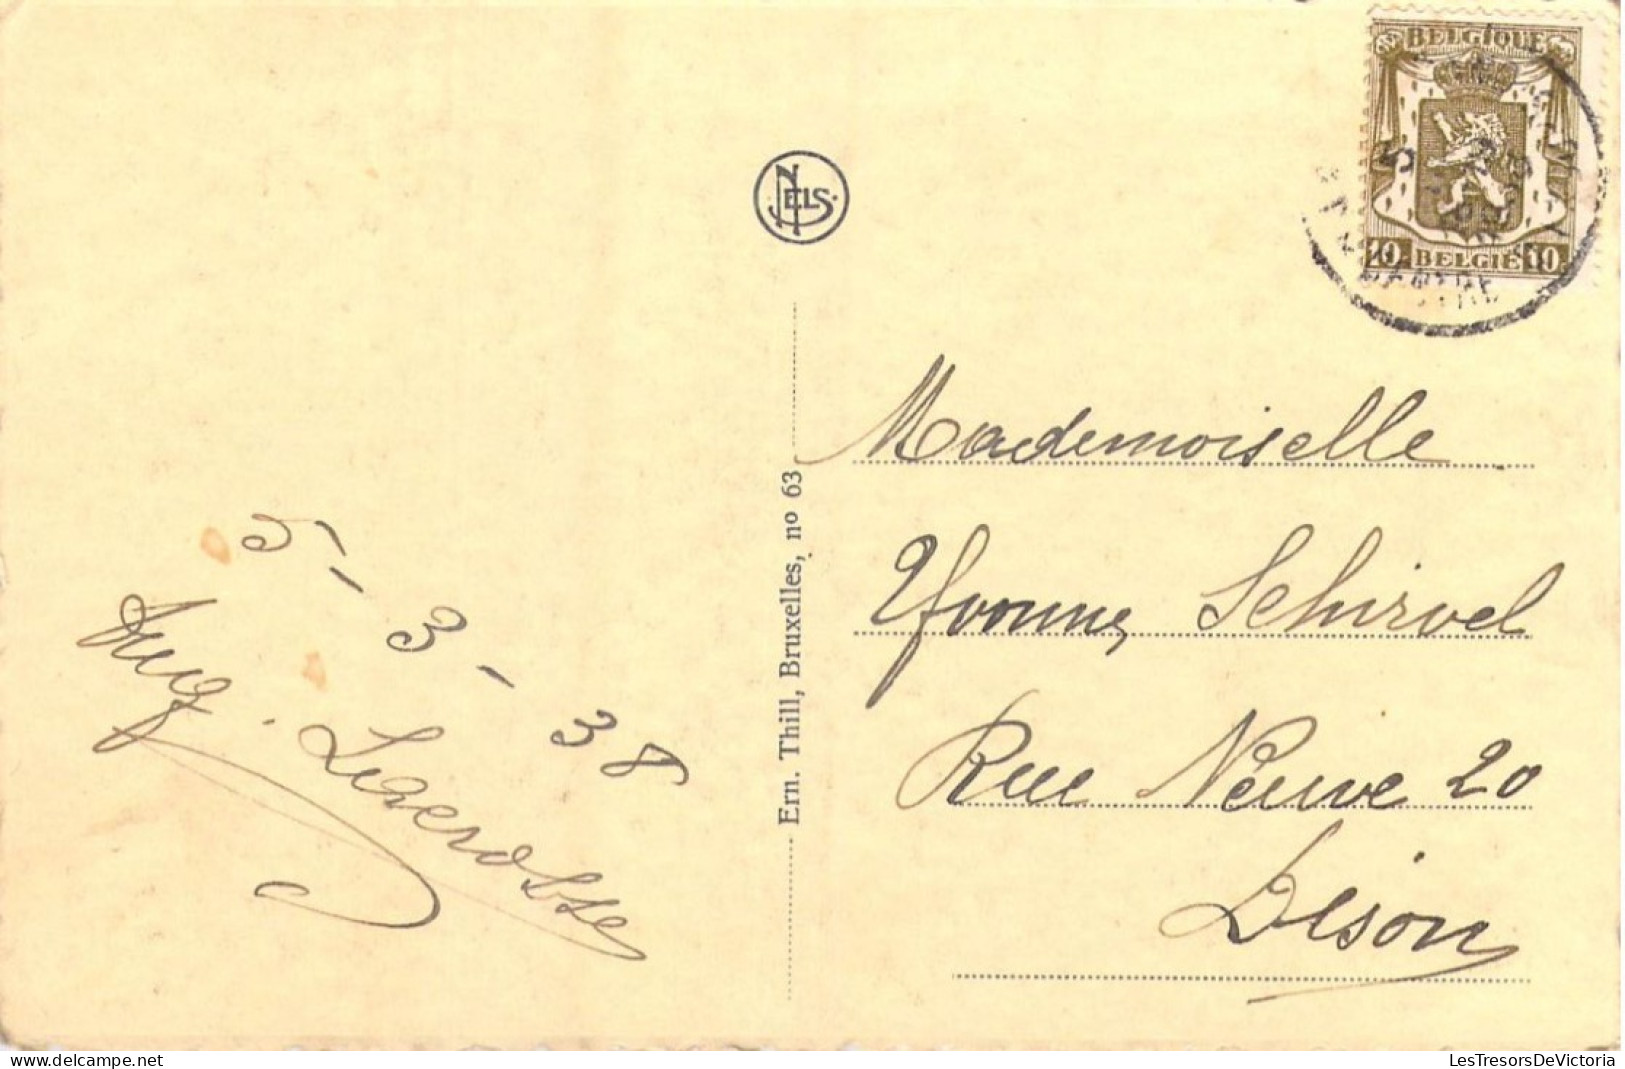 BELGIQUE
10 BELGIË 10
NELS
Mademoiselle
Yvonne Schirvel
Rue Neuve 20
Dison
Ern. Thill, Bruxelles, no 63
5-3-38
LesTresorsDeVictoria
www.delcampe.net